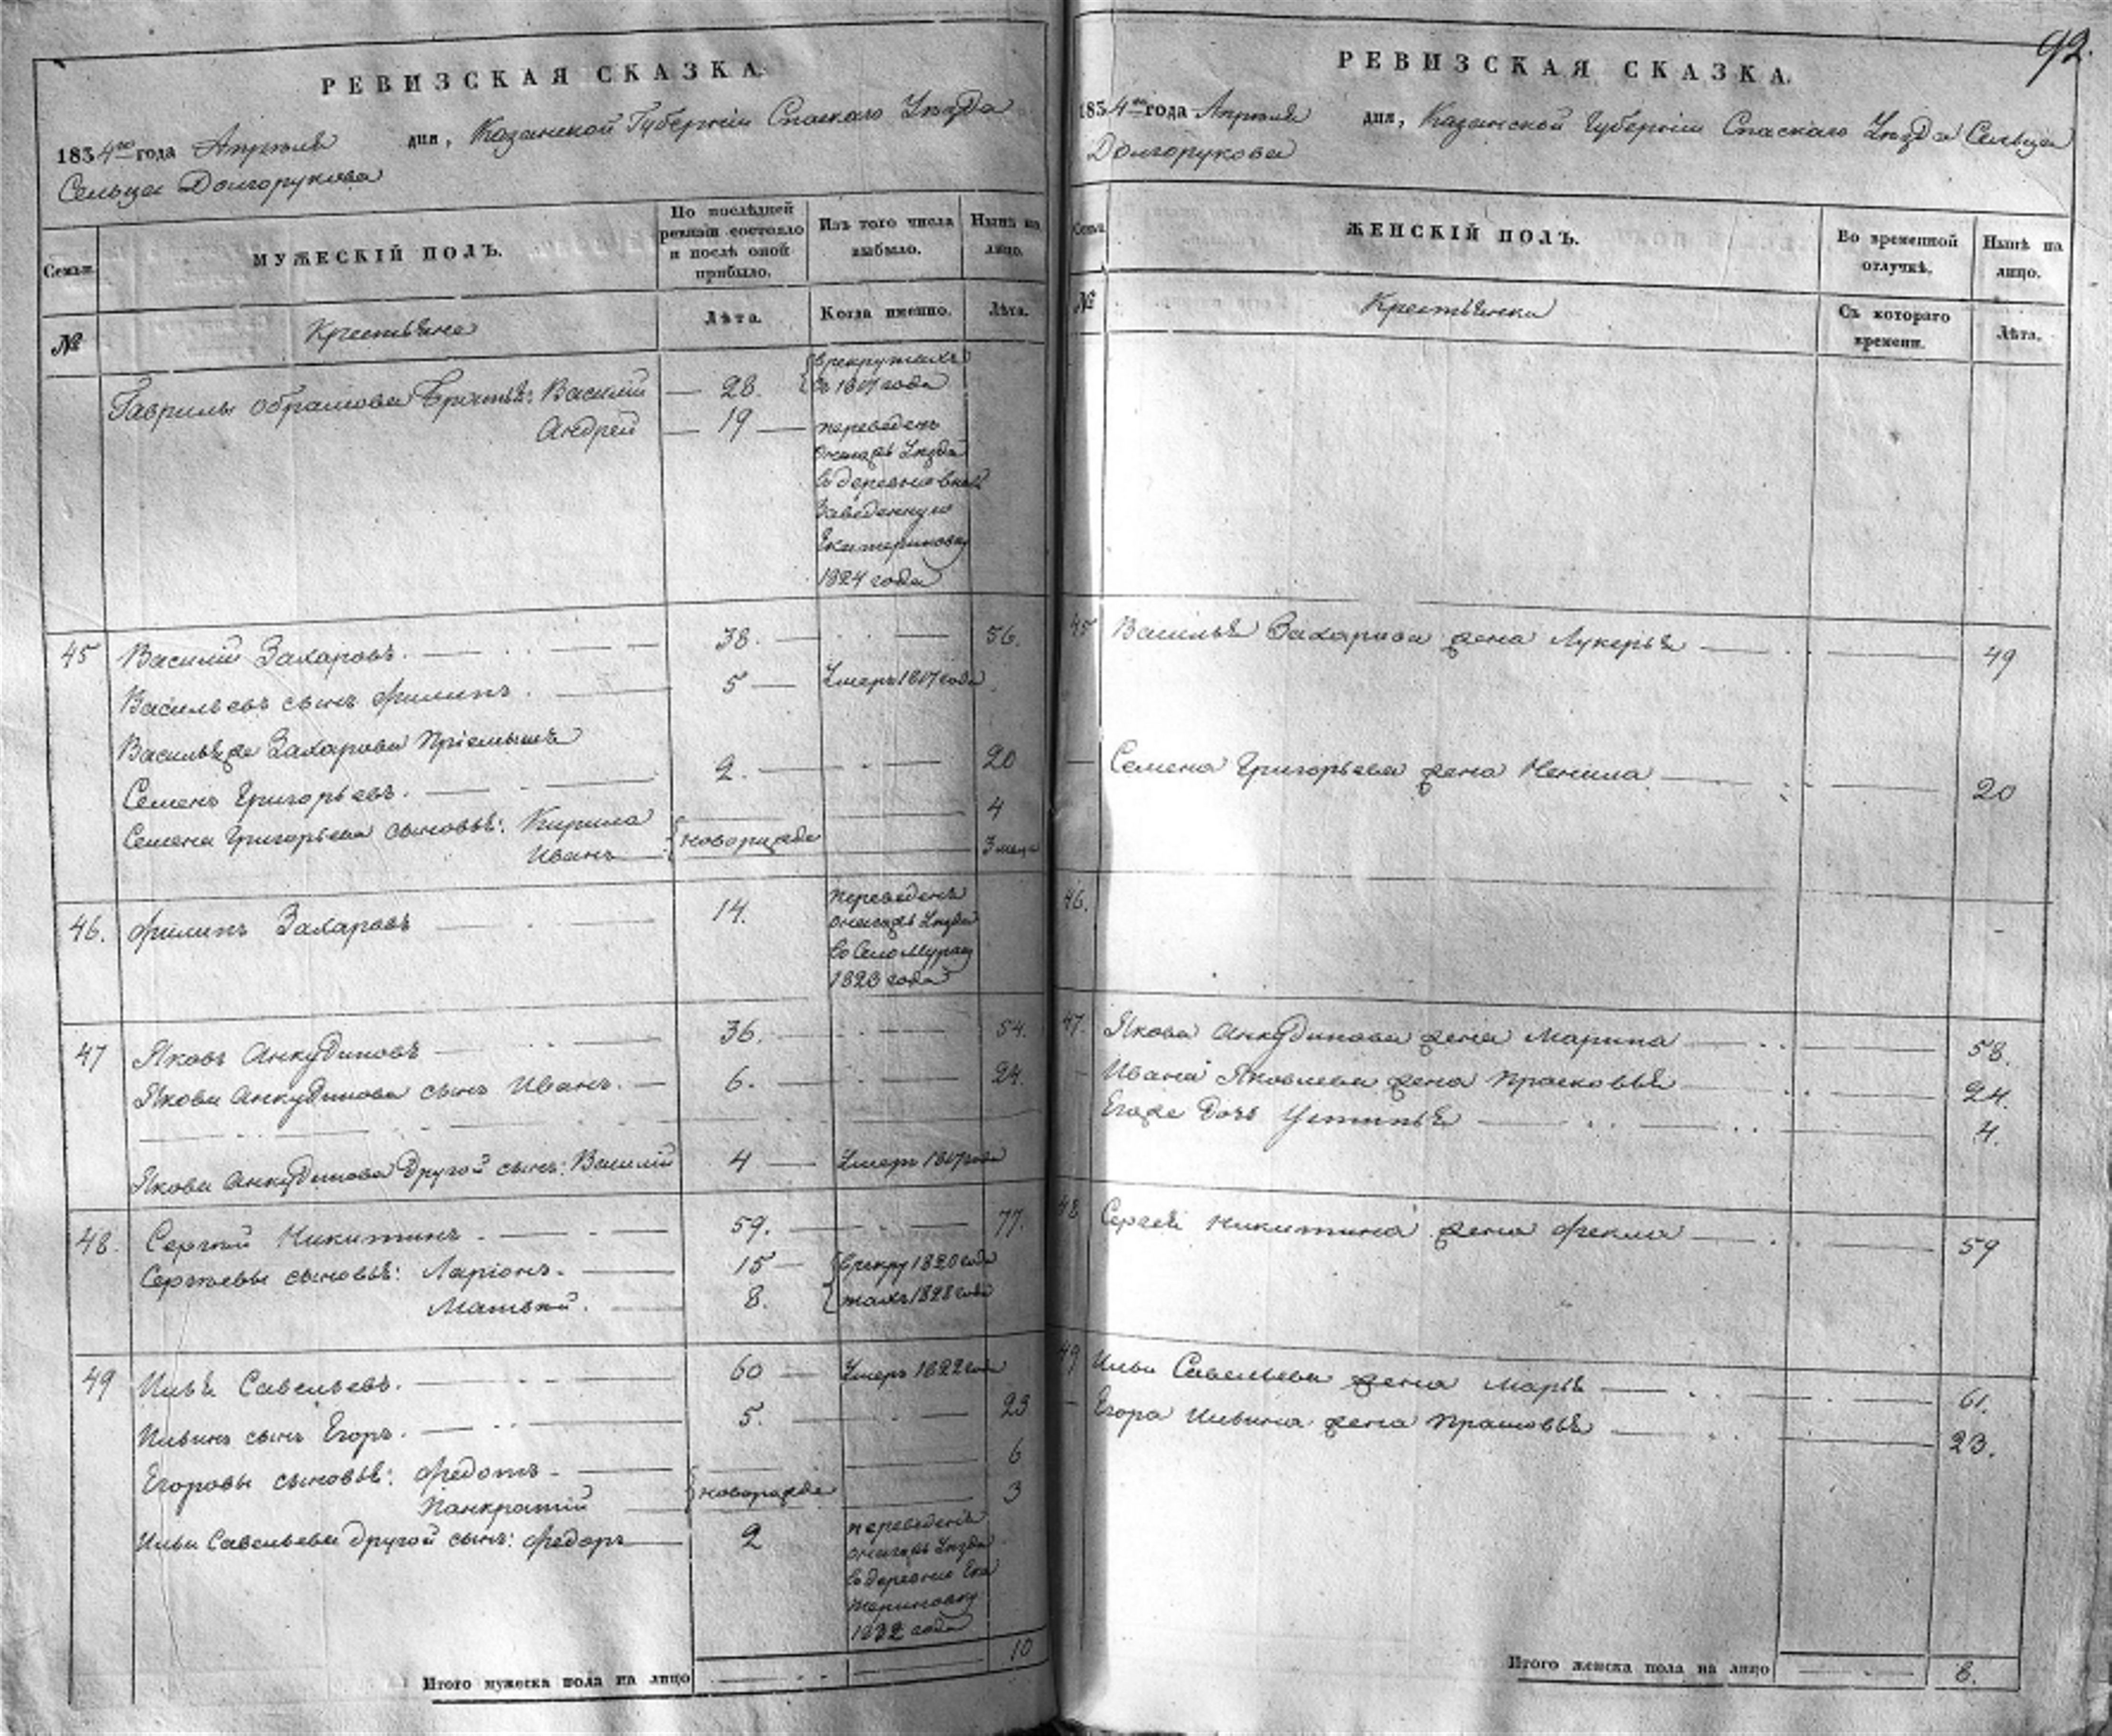 92.
РЕВИЗСКАЯ СКАЗКА.
1834го года Апреля дня, Казанской Губернии Спаскаго Уезда
Сельца Долгорукова
Семьи.
МУЖЕСКІЙ ПОЛЪ.
По послѣдней ревизіи состояло и послѣ оной прибыло.
Изъ того числа выбыло.
Нынѣ на лицо.
№
Крестьяне
Лѣта.
Когда именно.
Лѣта.
Гаврилы Абрамова братья: Василій 28. в рекрутахъ съ 1817 года
Андрей 19 переведенъ
Уезда
в деревню вновь
заведенную
Екатериновку
1824 года
45 Василій Захаровъ. 38. 56.
Васильевъ сынъ Филипъ. 5 Умеръ 1817 года
Васильяже Захарова пріемышъ
Семенъ Григорьевъ. 2. 20
Семена Григорьева сыновья: Кирила новорожде 4
Иванъ 3 меца
46. Филипъ Захаровъ 14. переведенъ
Уезда
в Село Мурасу
1823 года
47 Яковъ Анкудиновъ 36. 54.
Якова Анкудинова сынъ Иванъ. 6. 24.
Якова Анкудинова другой сынъ: Василій 4 Умеръ 1817 года
48. Сергѣй Никитинъ. 59. 77.
Сергѣевы сыновья: Ларіонъ. 15 в рекру 1820 года
Матвѣй. 8. тахъ 1828 года
49 Илья Савельевъ. 60 Умеръ 1822 года
Ильинъ сынъ Егоръ. 5. 23
Егоровы сыновья: Федотъ новорожде 6
Панкратій 3
Ильи Савельева другой сынъ: Федоръ 2 переведенъ
Уезда
в деревню Ека
териновку
1832 года
Итого мужеска пола на лицо 10
РЕВИЗСКАЯ СКАЗКА.
1834го года Апреля дня, Казанской Губернии Спаскаго Уезда Сельца
Долгорукова
Семьи.
ЖЕНСКІЙ ПОЛЪ.
Во временной отлучкѣ.
Нынѣ на лицо.
№
Крестьянки
Съ котораго времени.
Лѣта.
45 Василья Захарова жена Лукерья 49
Семена Григорьева жена Ненила 20
46.
47. Якова Анкудинова жена Марина 58.
Ивана Яковлева жена Прасковья 24.
Егоже дочь Устинья 4.
48 Сергея Никитина жена Фекла 59
49 Ильи Савельева жена Марья 61.
Егора Ильина жена Прасковья 23.
Итого женска пола на лицо 8.